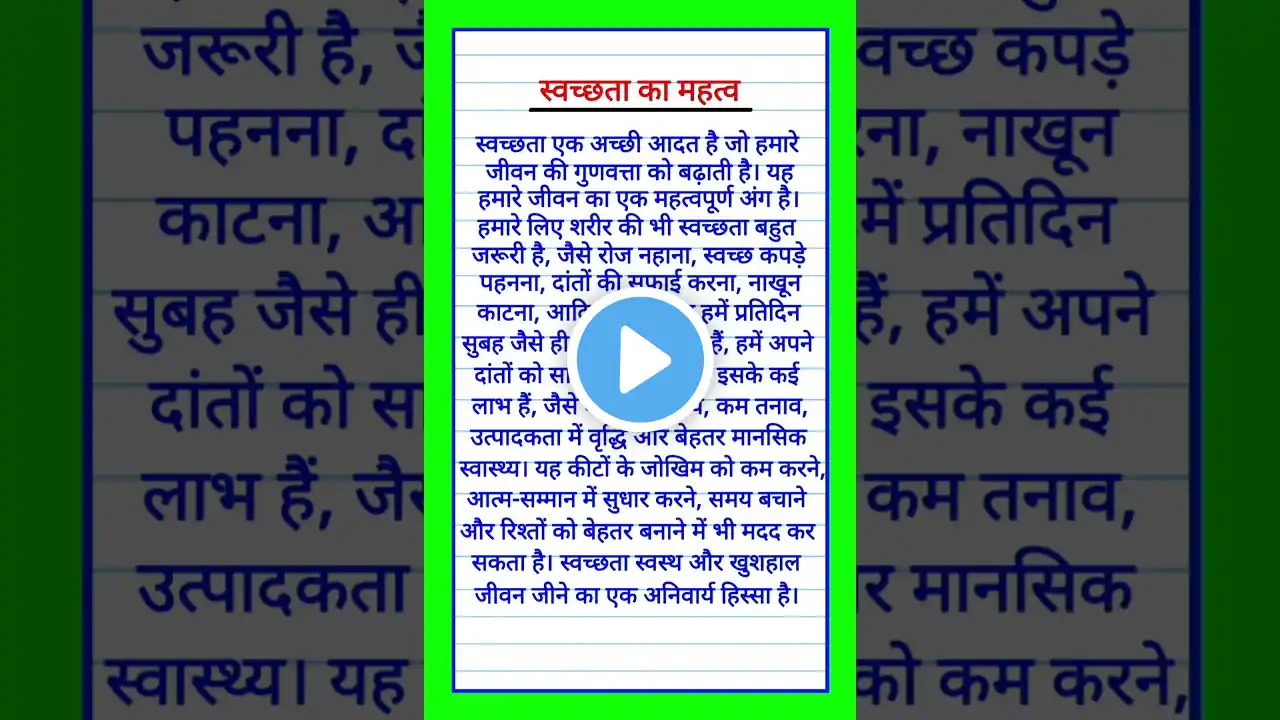 स्वच्छता का महत्व
स्वच्छता एक अच्छी आदत है जो हमारे
जीवन की गुणवत्ता को बढ़ाती है। यह
हमारे जीवन का एक महत्वपूर्ण अंग है।
हमारे लिए शरीर की भी स्वच्छता बहुत
जरूरी है, जैसे रोज नहाना, स्वच्छ कपड़े
पहनना, दांतों की सफाई करना, नाखून
काटना, हमें प्रतिदिन
सुबह जैसे ही हैं, हमें अपने
दांतों को इसके कई
लाभ हैं, जैसे कम तनाव,
उत्पादकता में वृद्धि और बेहतर मानसिक
स्वास्थ्य। यह कीटों के जोखिम को कम करने,
आत्म-सम्मान में सुधार करने, समय बचाने
और रिश्तों को बेहतर बनाने में भी मदद कर
सकता है। स्वच्छता स्वस्थ और खुशहाल
जीवन जीने का एक अनिवार्य हिस्सा है।